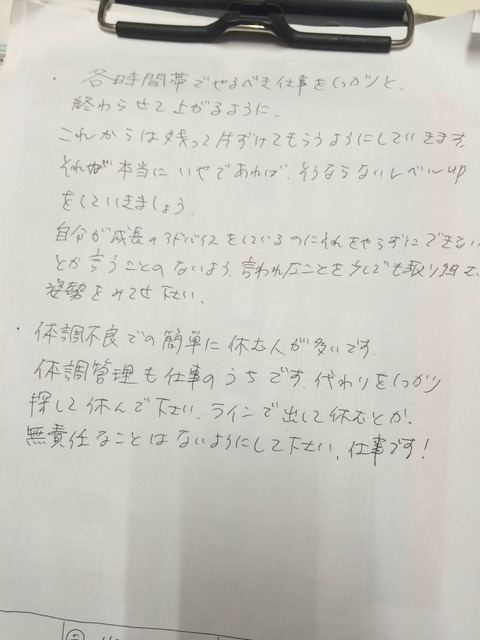 ・各時間帯でやるべき仕事をしっかりと、
終わらせて上がるように、
これからは残って片ずけてもらうようにしていきます。
それが本当にいやであれば、そうならないレベルup
をしていきましょう。
自分が成長のアドバイスをしているのにそれをやらずにできない
とか言うことのないよう、言われたことを少しでも取り組む
姿勢をみてせ下さい、
・体調不良での簡単に休む人が多いです。
体調管理も仕事のうちです。代わりをしっかり
探して休んで下さい。ラインで出して休むとか、
無責任なことはないようにして下さい、仕事です!